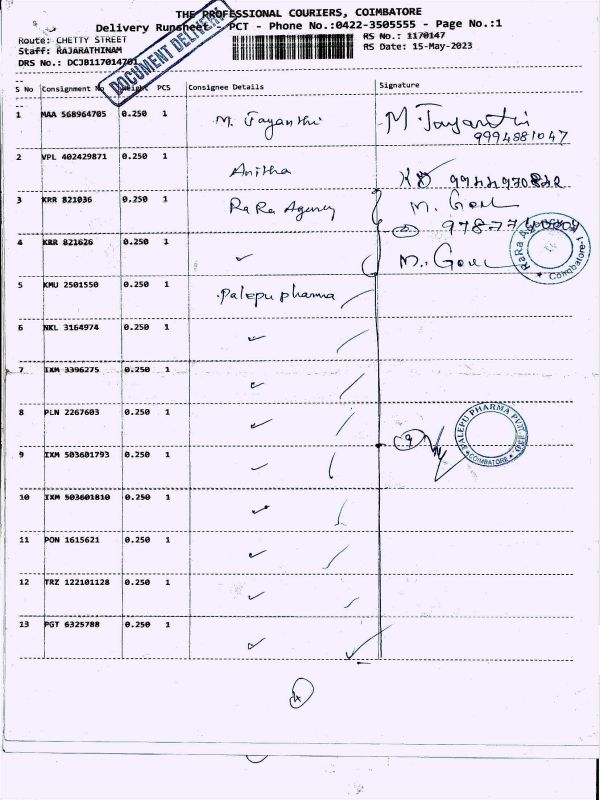 THE PROFESSIONAL COURIERS, COIMBATORE
Delivery Runsheet - PCT - Phone No.:0422-3505555 - Page No.:1
Route: CHETTY STREET
RS No.: 1170147
Staff: RAJARATHINAM
RS Date: 15-May-2023
DRS No.: DCJB117014701
DOCUMENT DELIVERY
S No Consignment No Weight PCS Consignee Details Signature
1 MAA 568964705 0.250 1 M. Jayanthi M Jayanthi
9994881047
2 VPL 402429871 0.250 1 Anitha
3 KRR 821036 0.250 1 RaRa Agency M.
4 KRR 821626 0.250 1 ✓ M.
RaRa Coimbatore-1
5 KMU 2501550 0.250 1 Palepu pharma
6 NKL 3164974 0.250 1 ✓
7 IXM 3396275 0.250 1 ✓
8 PLN 2267603 0.250 1 ✓
PALEPU PHARMA PVT. LTD. * COIMBATORE *
9 IXM 503601793 0.250 1 ✓ 9
10 IXM 503601810 0.250 1 ✓
11 PON 1615621 0.250 1 ✓
12 TRZ 122101128 0.250 1 ✓
13 PGT 6325788 0.250 1 ✓